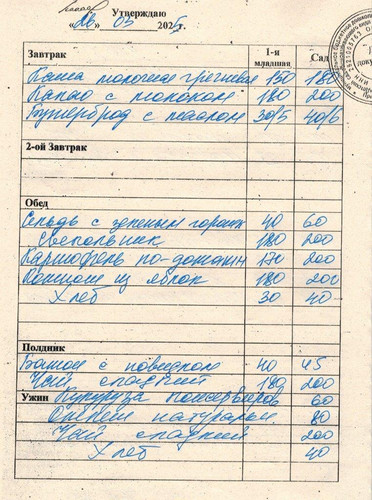 Утверждаю
«26» 03 2025г.
1-я младшая Сад
Завтрак
Каша молочная гречневая 150 180
Какао с молоком 180 200
Бутерброд с маслом 30/5 40/6
2-ой Завтрак
Обед
Сельдь с зеленым горошк 40 60
Свекольник 180 200
Картофель по-домашн 170 200
Компот из яблок 180 200
Хлеб 30 40
Полдник
Батон с повидлом 40 45
Чай сладкий 180 200
Ужин Кукуруза консервиров 60
Омлет натуральн. 80
Чай сладкий 200
Хлеб 40